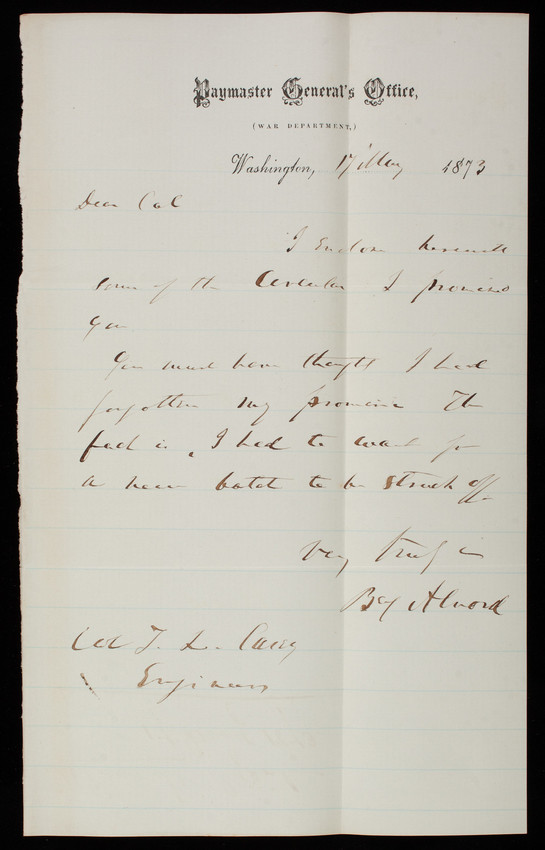 Paymaster General's Office,
(WAR DEPARTMENT,)
Washington, 17 May 1873
Dear Col
I enclose herewith
some of the Circulars I promised
you
You must have thought I had
forgotten my promise The
fact is, I had to wait for
a new batch to be struck off
Very truly
Benj Alvord
Col T. L. Casey
Engineers